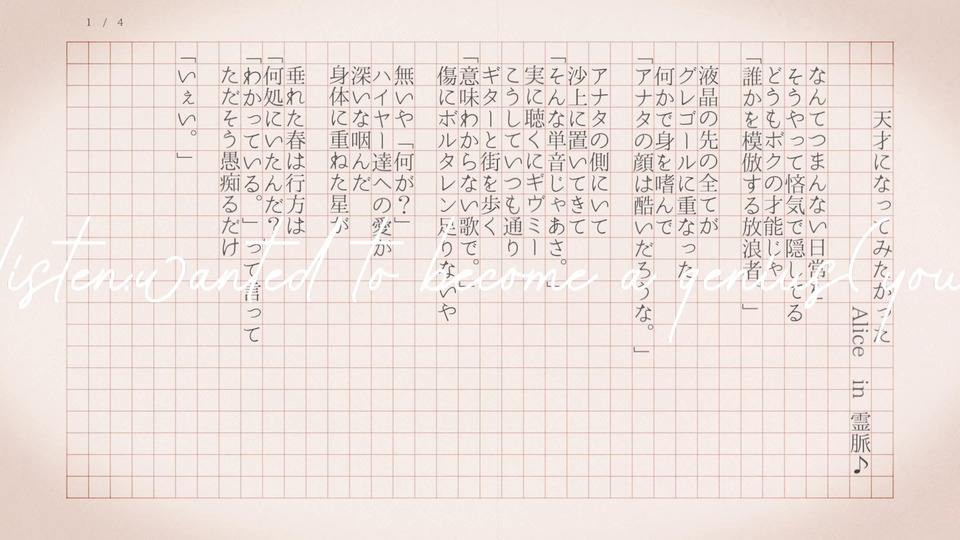 1 / 4
天才になってみたかった
Alice in 霊脈♪
なんてつまんない日常と
そうやって悋気で隠してる
どうもボクの才能じゃ
「誰かを模倣する放浪者。」
液晶の先の全てが
グレゴールに重なった
何かで身を嗜んで
「アナタの顔は酷いだろうな。」
アナタの側にいて
沙上に置いてきて
実に聴くにギヴミー
「そんな単音じゃあさ。」
こうしていつも通り
ギターと街を歩く
「意味わからない歌で。」
傷にボルタレン足りないや
無いや「何が？」
ハイヤー達への愛が
深いな咽んだ
身体に重ねた星が
垂れた春は行方は
「何処にいたんだ？」
「わかっている。」って言って
ただそう愚痴るだけ
「いぇい。」
listen.wanted to become a genius(you